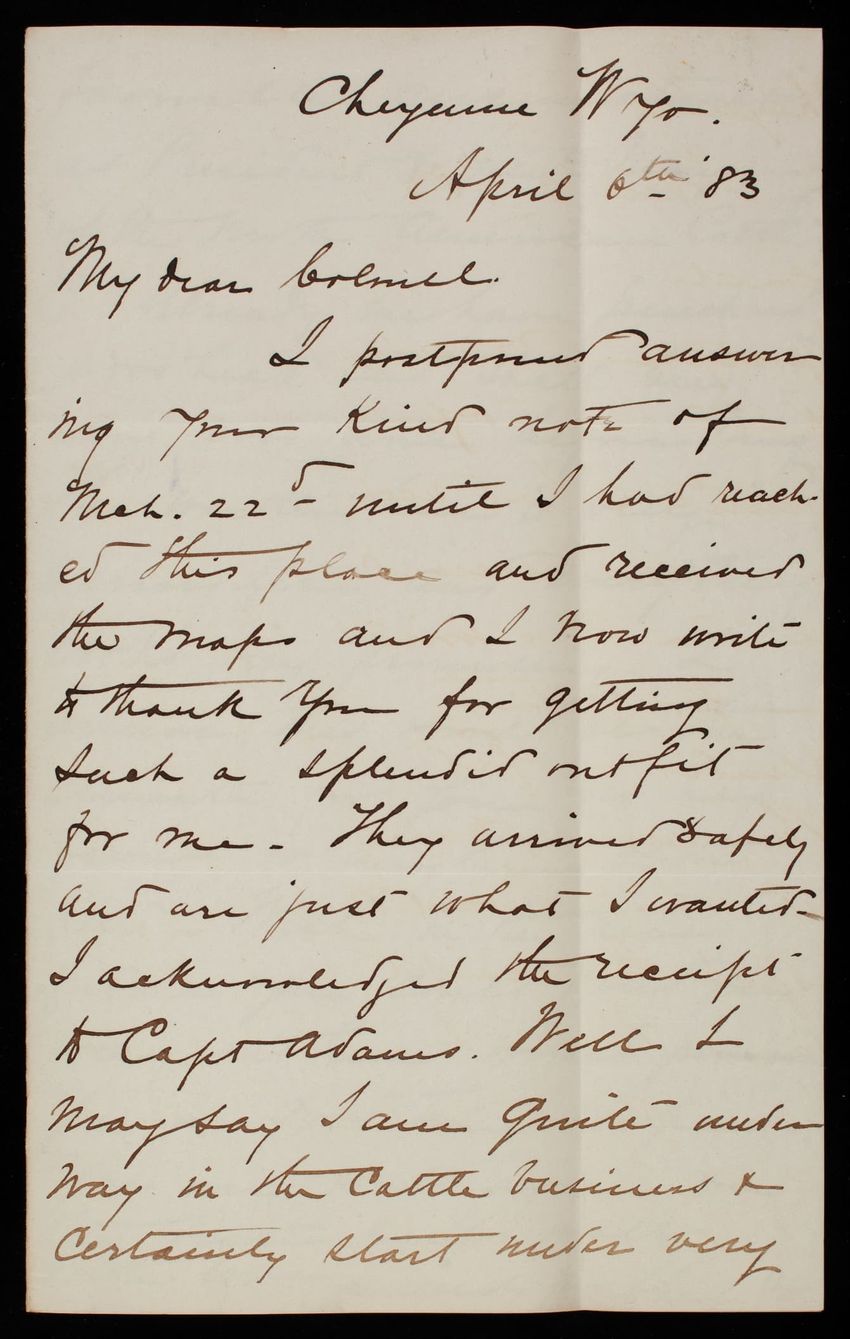 Cheyenne Wyo.
April 6th '83
My dear Colonel.
I postponed answer
ing your kind note of
Mch. 22d until I had reach-
ed this place and received
the maps and I now write
to thank you for getting
such a splendid outfit
for me - They arrived safely
and are just what I wanted -
I acknowledged the receipt
to Capt Adams. Well I
may say I am quite under
way in the Cattle business &
Certainly start under very